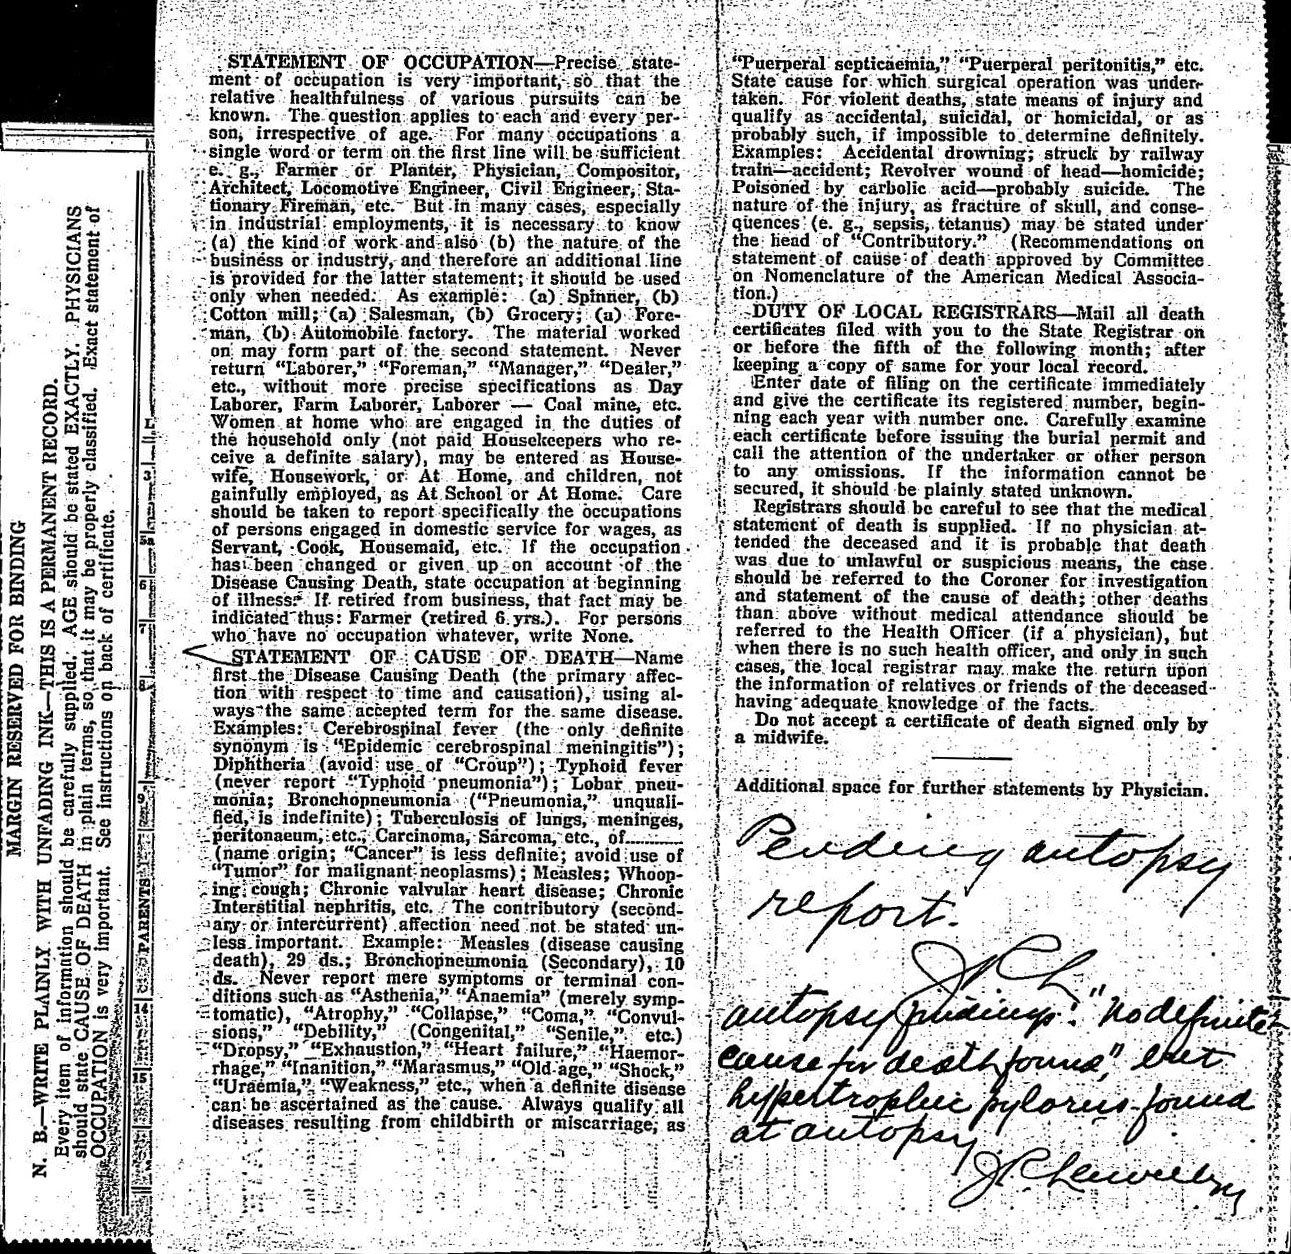 MARGIN RESERVED FOR BINDING
N. B.—WRITE PLAINLY WITH UNFADING INK—THIS IS A PERMANENT RECORD.
Every item of information should be carefully supplied. AGE should be stated EXACTLY. PHYSICIANS
should state CAUSE OF DEATH in plain terms, so that it may be properly classified. Exact statement of
OCCUPATION is very important. See instructions on back of certificate.
3
5a
6
7
8
9
PARENTS
14
15
STATEMENT OF OCCUPATION—Precise state-
ment of occupation is very important, so that the
relative healthfulness of various pursuits can be
known. The question applies to each and every per-
son, irrespective of age. For many occupations a
single word or term on the first line will be sufficient
e. g., Farmer or Planter, Physician, Compositor,
Architect, Locomotive Engineer, Civil Engineer, Sta-
tionary Fireman, etc. But in many cases, especially
in industrial employments, it is necessary to know
(a) the kind of work and also (b) the nature of the
business or industry, and therefore an additional line
is provided for the latter statement; it should be used
only when needed. As example: (a) Spinner, (b)
Cotton mill; (a) Salesman, (b) Grocery; (a) Fore-
man, (b) Automobile factory. The material worked
on may form part of the second statement. Never
return "Laborer," "Foreman," "Manager," "Dealer,"
etc., without more precise specifications as Day
Laborer, Farm Laborer, Laborer — Coal mine, etc.
Women at home who are engaged in the duties of
the household only (not paid Housekeepers who re-
ceive a definite salary), may be entered as House-
wife, Housework, or At Home, and children, not
gainfully employed, as At School or At Home. Care
should be taken to report specifically the occupations
of persons engaged in domestic service for wages, as
Servant, Cook, Housemaid, etc. If the occupation
has been changed or given up on account of the
Disease Causing Death, state occupation at beginning
of illness. If retired from business, that fact may be
indicated thus: Farmer (retired 6 yrs.). For persons
who have no occupation whatever, write None.
STATEMENT OF CAUSE OF DEATH—Name
first the Disease Causing Death (the primary affec-
tion with respect to time and causation), using al-
ways the same accepted term for the same disease.
Examples: Cerebrospinal fever (the only definite
synonym is "Epidemic cerebrospinal meningitis");
Diphtheria (avoid use of "Croup"); Typhoid fever
(never report "Typhoid pneumonia"); Lobar pneu-
monia; Bronchopneumonia ("Pneumonia," unquali-
fied, is indefinite); Tuberculosis of lungs, meninges,
peritonaeum, etc., Carcinoma, Sarcoma, etc., of............
(name origin; "Cancer" is less definite; avoid use of
"Tumor" for malignant neoplasms); Measles; Whoop-
ing cough; Chronic valvular heart disease; Chronic
Interstitial nephritis, etc. The contributory (second-
ary or intercurrent) affection need not be stated un-
less important. Example: Measles (disease causing
death), 29 ds.; Bronchopneumonia (Secondary), 10
ds. Never report mere symptoms or terminal con-
ditions such as "Asthenia," "Anaemia" (merely symp-
tomatic), "Atrophy," "Collapse," "Coma," "Convul-
sions," "Debility," (Congenital," "Senile," etc.)
"Dropsy," "Exhaustion," "Heart failure," "Haemor-
rhage," "Inanition," "Marasmus," "Old age," "Shock,"
"Uraemia," "Weakness," etc., when a definite disease
can be ascertained as the cause. Always qualify all
diseases resulting from childbirth or miscarriage, as
"Puerperal septicaemia," "Puerperal peritonitis," etc.
State cause for which surgical operation was under-
taken. For violent deaths, state means of injury and
qualify as accidental, suicidal, or homicidal, or as
probably such, if impossible to determine definitely.
Examples: Accidental drowning; struck by railway
train—accident; Revolver wound of head—homicide;
Poisoned by carbolic acid—probably suicide. The
nature of the injury, as fracture of skull, and conse-
quences (e. g., sepsis, tetanus) may be stated under
the head of "Contributory." (Recommendations on
statement of cause of death approved by Committee
on Nomenclature of the American Medical Associa-
tion.)
DUTY OF LOCAL REGISTRARS—Mail all death
certificates filed with you to the State Registrar on
or before the fifth of the following month; after
keeping a copy of same for your local record.
Enter date of filing on the certificate immediately
and give the certificate its registered number, begin-
ning each year with number one. Carefully examine
each certificate before issuing the burial permit and
call the attention of the undertaker or other person
to any omissions. If the information cannot be
secured, it should be plainly stated unknown.
Registrars should be careful to see that the medical
statement of death is supplied. If no physician at-
tended the deceased and it is probable that death
was due to unlawful or suspicious means, the case
should be referred to the Coroner for investigation
and statement of the cause of death; other deaths
than above without medical attendance should be
referred to the Health Officer (if a physician), but
when there is no such health officer, and only in such
cases, the local registrar may make the return upon
the information of relatives or friends of the deceased
having adequate knowledge of the facts.
Do not accept a certificate of death signed only by
a midwife.
Additional space for further statements by Physician.
Pending autopsy
report.
JPL
autopsy findings: "No definite
cause for death found", but
hypertrophic pylorus found
at autopsy